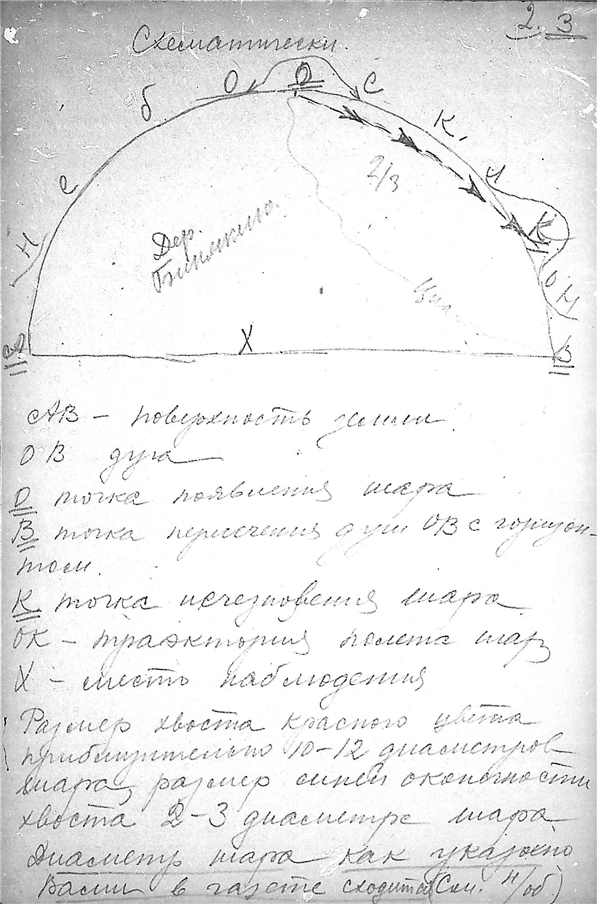 2. 3
Схематически.
небо О О скл
2/3
К
он
Дер.
А Х В
АВ – поверхность земли.
ОВ дуга
О точка появления шара
В точка пересечения дуги ОВ с горизон-
том.
К точка исчезновения шара
ОК – траэктория полета шар
Х – место наблюдения
Размер хвоста красного цвета
приблизительно 10-12 диаметров
шара, размер синей оконечности
хвоста 2-3 диаметра шара
Диаметр шара как указано
Вами в газете сходится (См. 4/об)